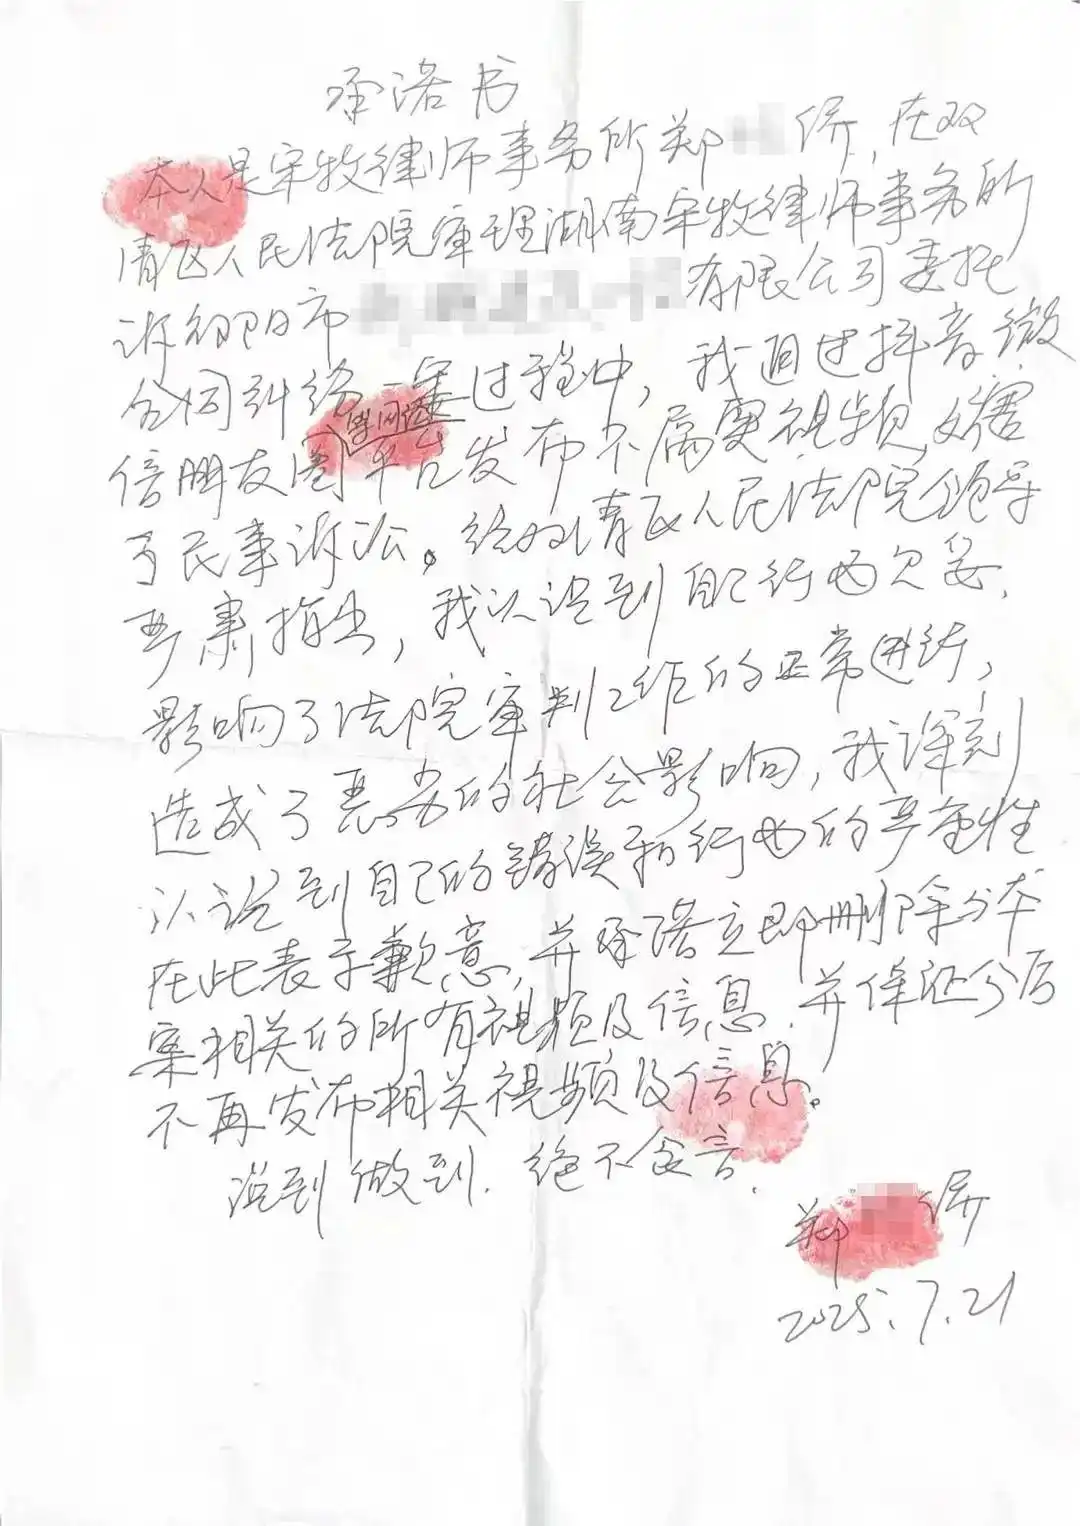 承诺书
本人是宋牧律师事务所郑 侨,在双
清区人民法院审理湖南宋牧律师事务所
诉邵阳市 有限公司委托
合同纠纷一案过程中,我通过抖音微
信朋友圈等网络平台发布不属实视频,妨害
了民事诉讼。经双清区人民法院领导
严肃指出,我认识到自己行为欠妥,
影响了法院审判工作的正常进行,
造成了恶劣的社会影响,我深刻
认识到自己的错误和行为的严重性
在此表示歉意,并承诺立即删除与本
案相关的所有视频及信息,并保证今后
不再发布相关视频及信息。
说到做到,绝不食言.
郑 侨
2025.7.21